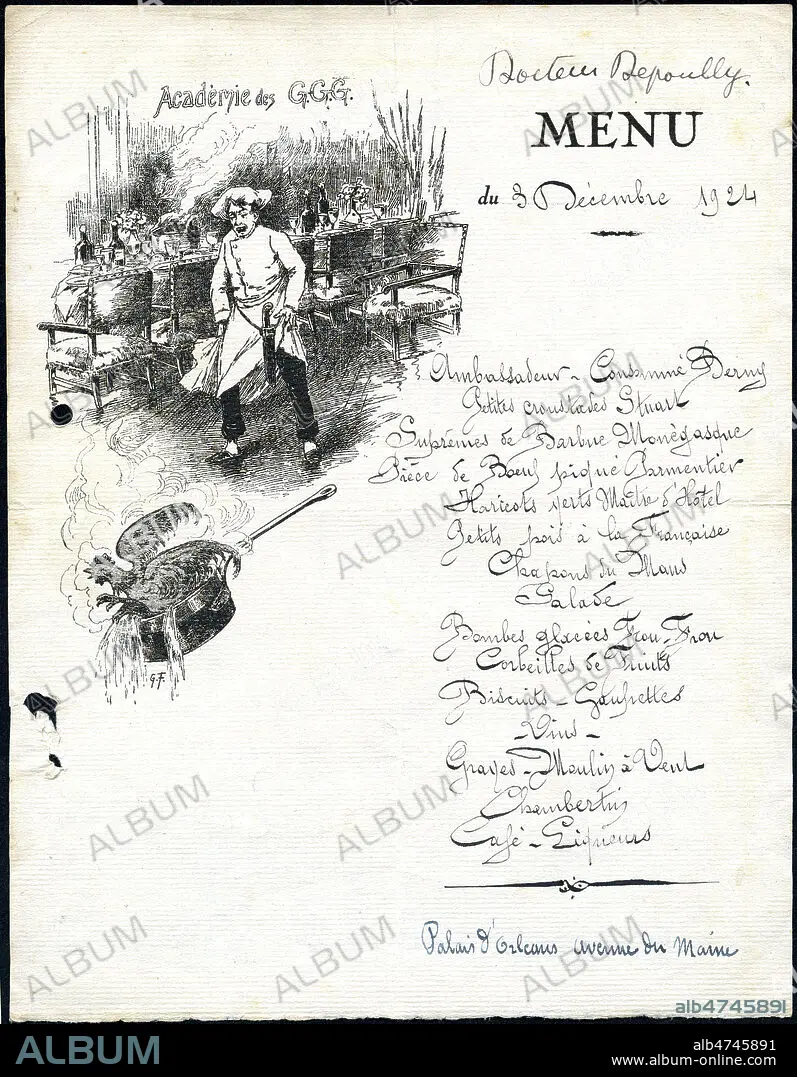 Docteur Depoully.
Académie des G.G.G.
MENU
du 3 Décembre 1924
Ambassadeur - Consommé Berny
Petites croustades Stuart
Suprêmes de Barbue Monégasque
Pièce de Bœuf piqué Parmentier
Haricots verts Maître d'Hôtel
Petits pois à la Française
Chapons du Mans
Salade
Bombes glacées Frou-Frou
Corbeilles de Fruits
Biscuits - Gaufrettes
- Vins -
Graves - Moulin à Vent
Chambertin
Café - Liqueurs
G.F
Palais d'Orléans avenue du Maine
alb4745891
ALBUM
alb4745891
www.album-online.com